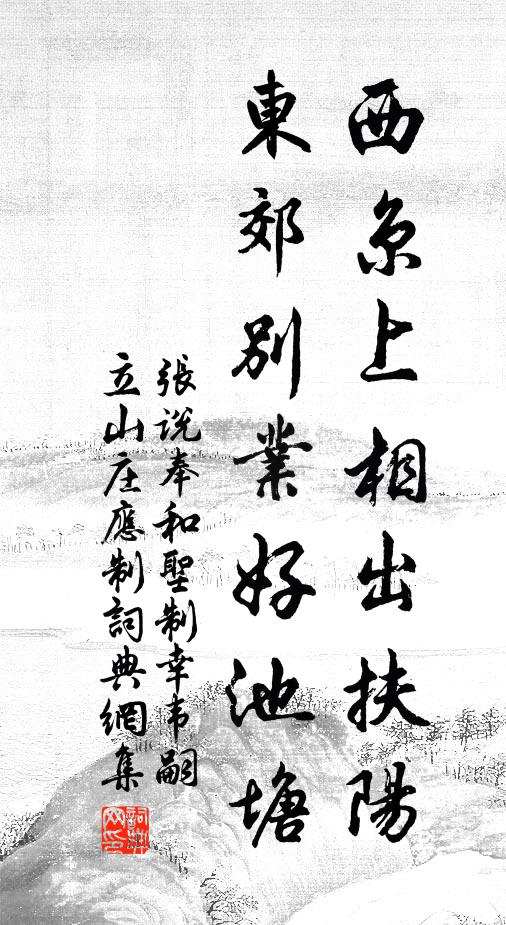 西京上相出扶陽
東郊別業好池塘
張説奉和聖制幸韦嗣
立山庄應制詞典網集